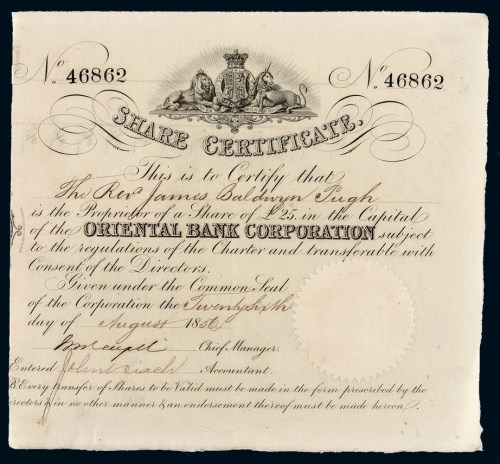 No. 46862 No. 46862
SHARE CERTIFICATE.
This is to Certify that
The Revd. James Baldwyn Pugh
is the Proprietor of a Share of £25. in the Capital
of the ORIENTAL BANK CORPORATION subject
to the regulations of the Charter and transferable with
Consent of the Directors.
Given under the Common Seal
of the Corporation the Twentysixth
day of August 185
Chief Manager.
Entered John Accountant.
B. Every transfer of Shares to be Valid must be made in the form prescribed by the
irectors & in no other manner & an endorsement thereof must be made hereon.